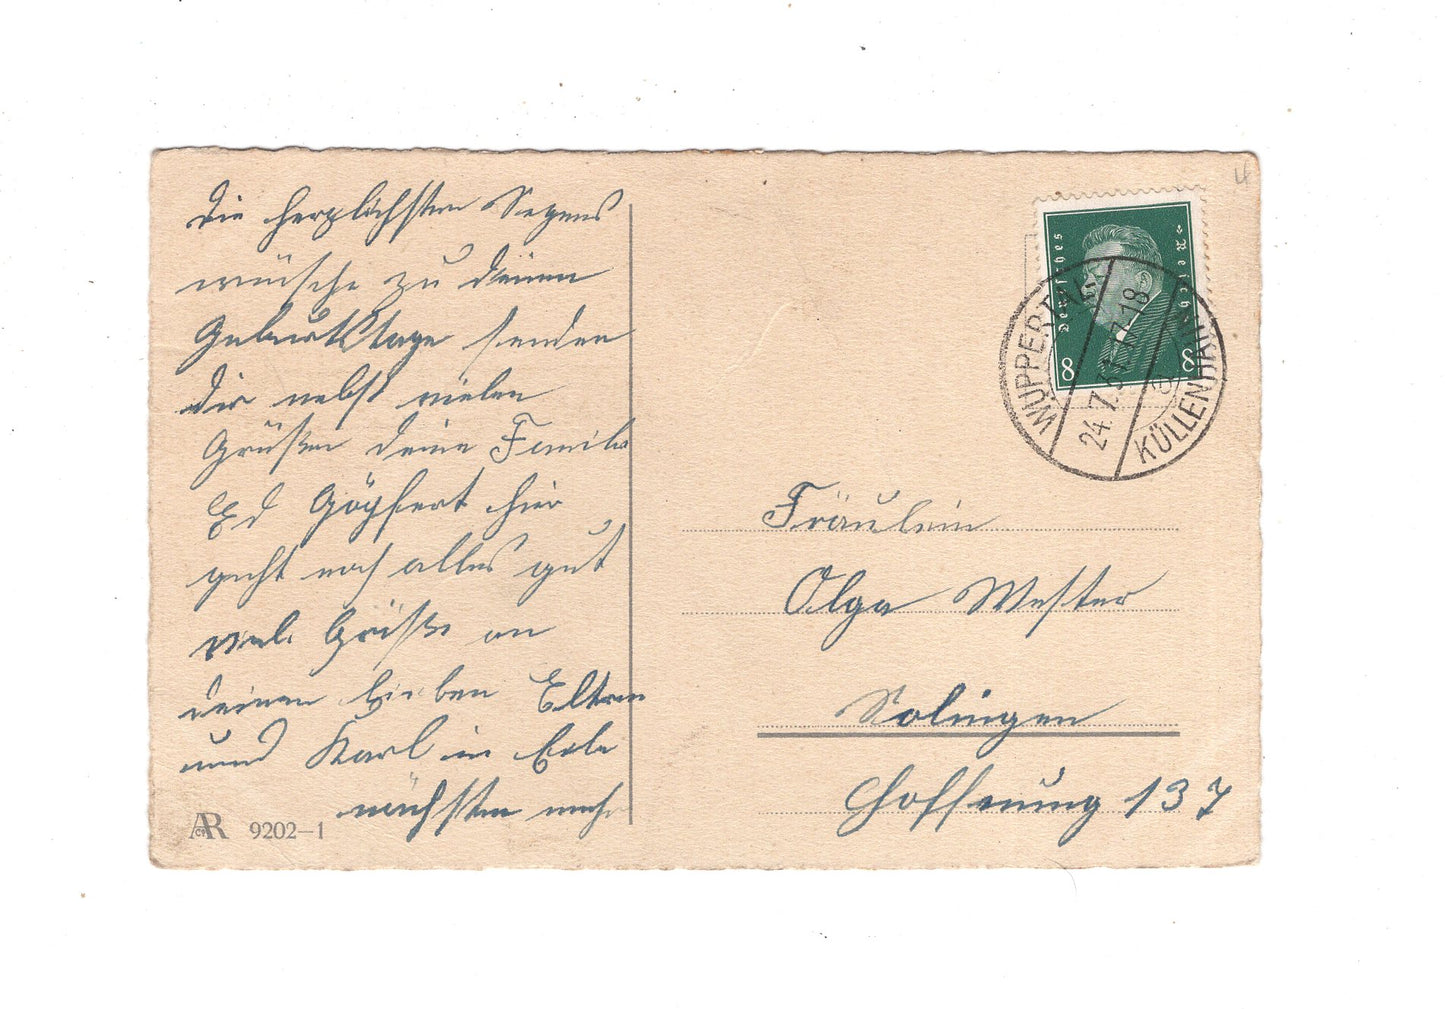 Die herzlichsten Segens
wünsche zu deinem
Geburtstage senden
dir nebst vielen
Grüßen deine Familie
Ed Göpfert hier
geht noch alles gut
Viele Grüße an
deinen lieben Eltern
und Karl in Eile
nächsten mehr
AR 9202-1
4
Deutsches Reich
8 8
WUPPERTAL-
24.7.31 17-18
KÜLLENHAHN
Fräulein
Olga Wester
Solingen
Hoffnung 137